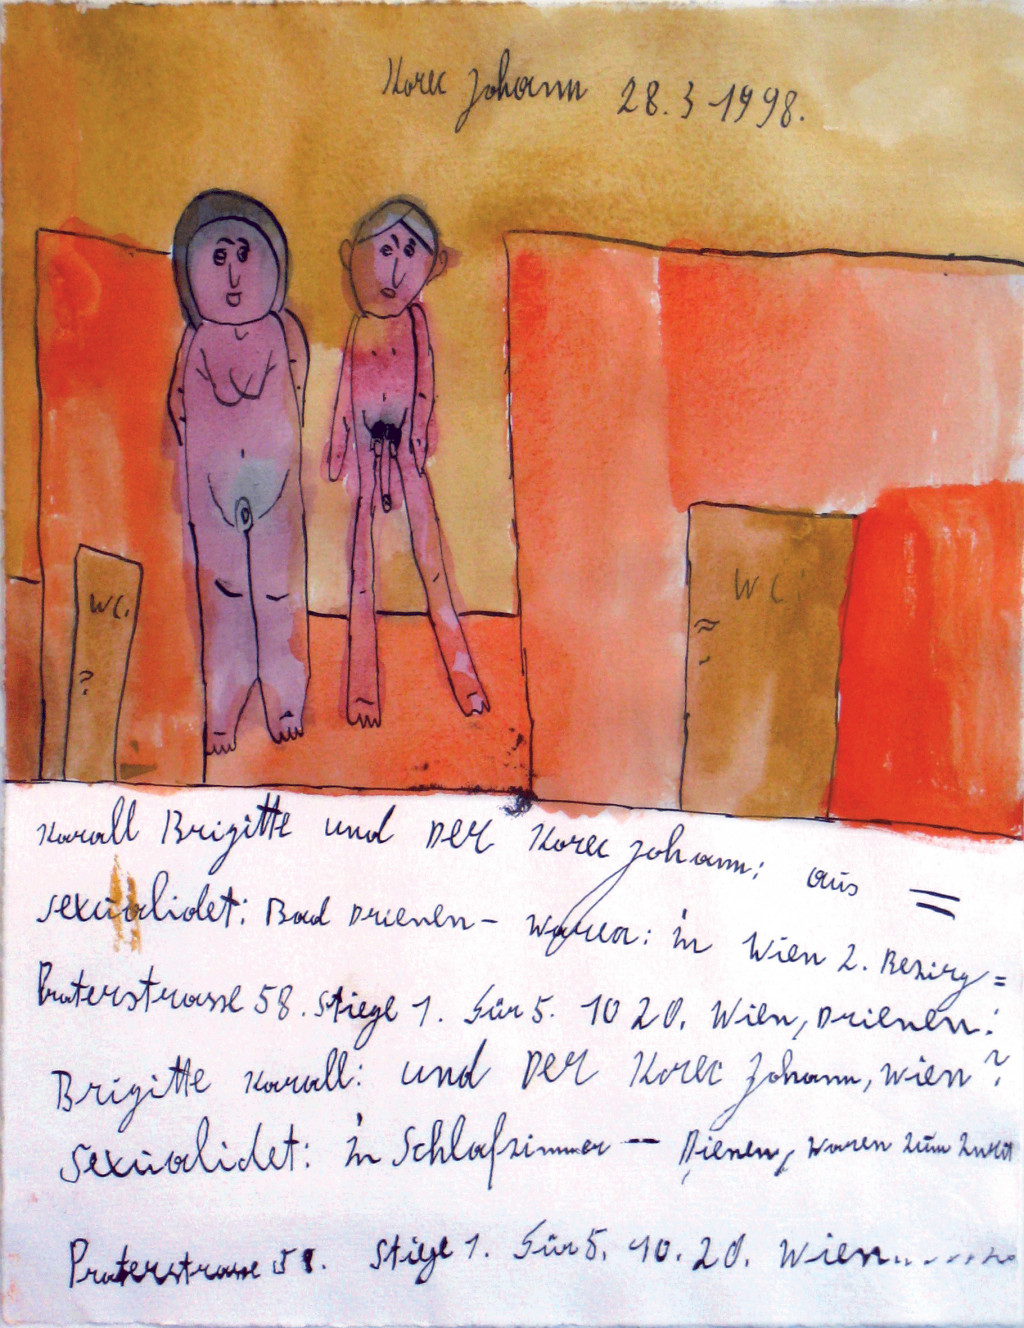 Korec Johann 28.3 1998.
WC.
?
WC:
Karall Brigitte und Der Korec Johann: aus =
sexüalidet: Bad Drienen – Waren: in Wien 2. Bezirg =
Praterstrasse 58. Stiege 1. Tür 5. 10 20. Wien, Drienen:
Brigitte Karall: und Der Korec Johann, Wien?
Sexüalidet: in Schlafzimmer -- Dienen, Waren zum
Praterstrasse 58. Stiege 1. Tür 5. 10. 20. Wien.......